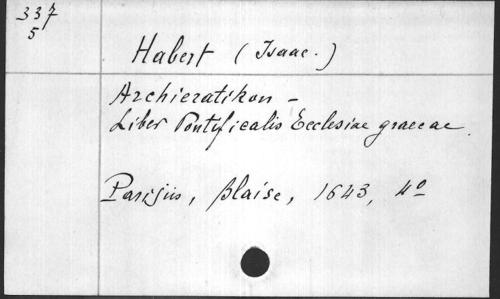 337
5
Habert (Isaac.)
Archieratikon -
Liber Pontificalis Ecclesiae graecae.
Parisjis, Blaise, 1643, 4º